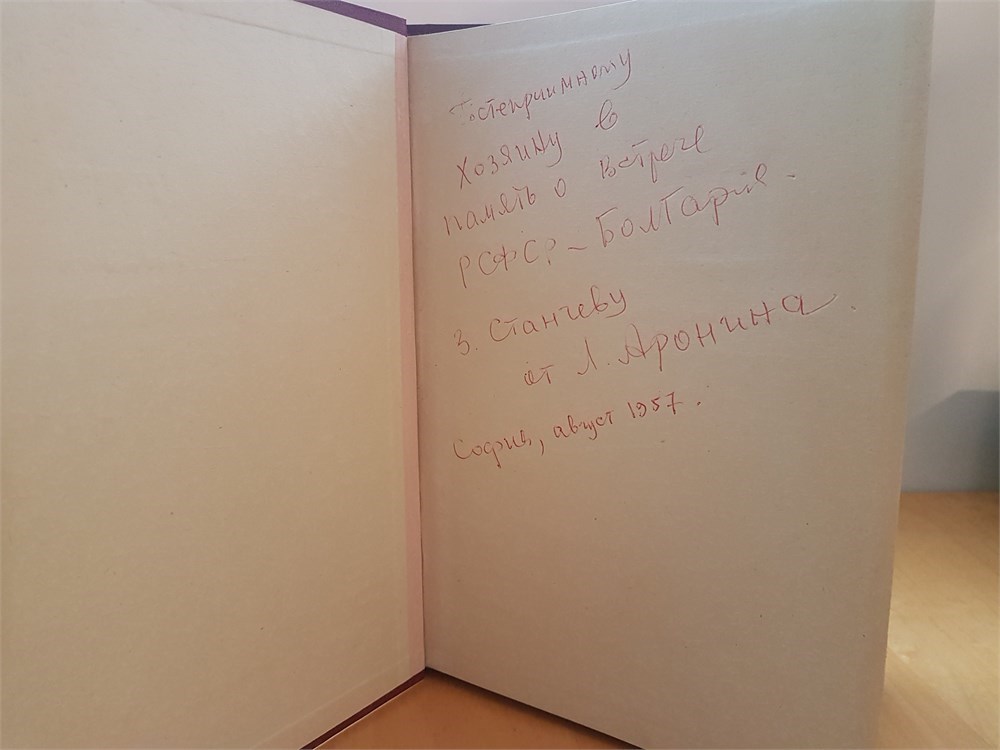 Гостеприимному
хозяину в
память о встрече
РСФСР – Болгария.
З. Станчеву
от Л. Аронина.
София, август 1957.